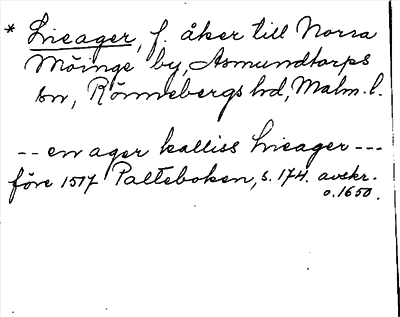 * Lieager, f. åker till Norra
Möinge by, Asmundtorps
sn, Rönnebergs hd, Malm. l.
-- en ager kalliss Lieager ---
före 1517 Palteboken, s. 174. avskr.
o. 1650.